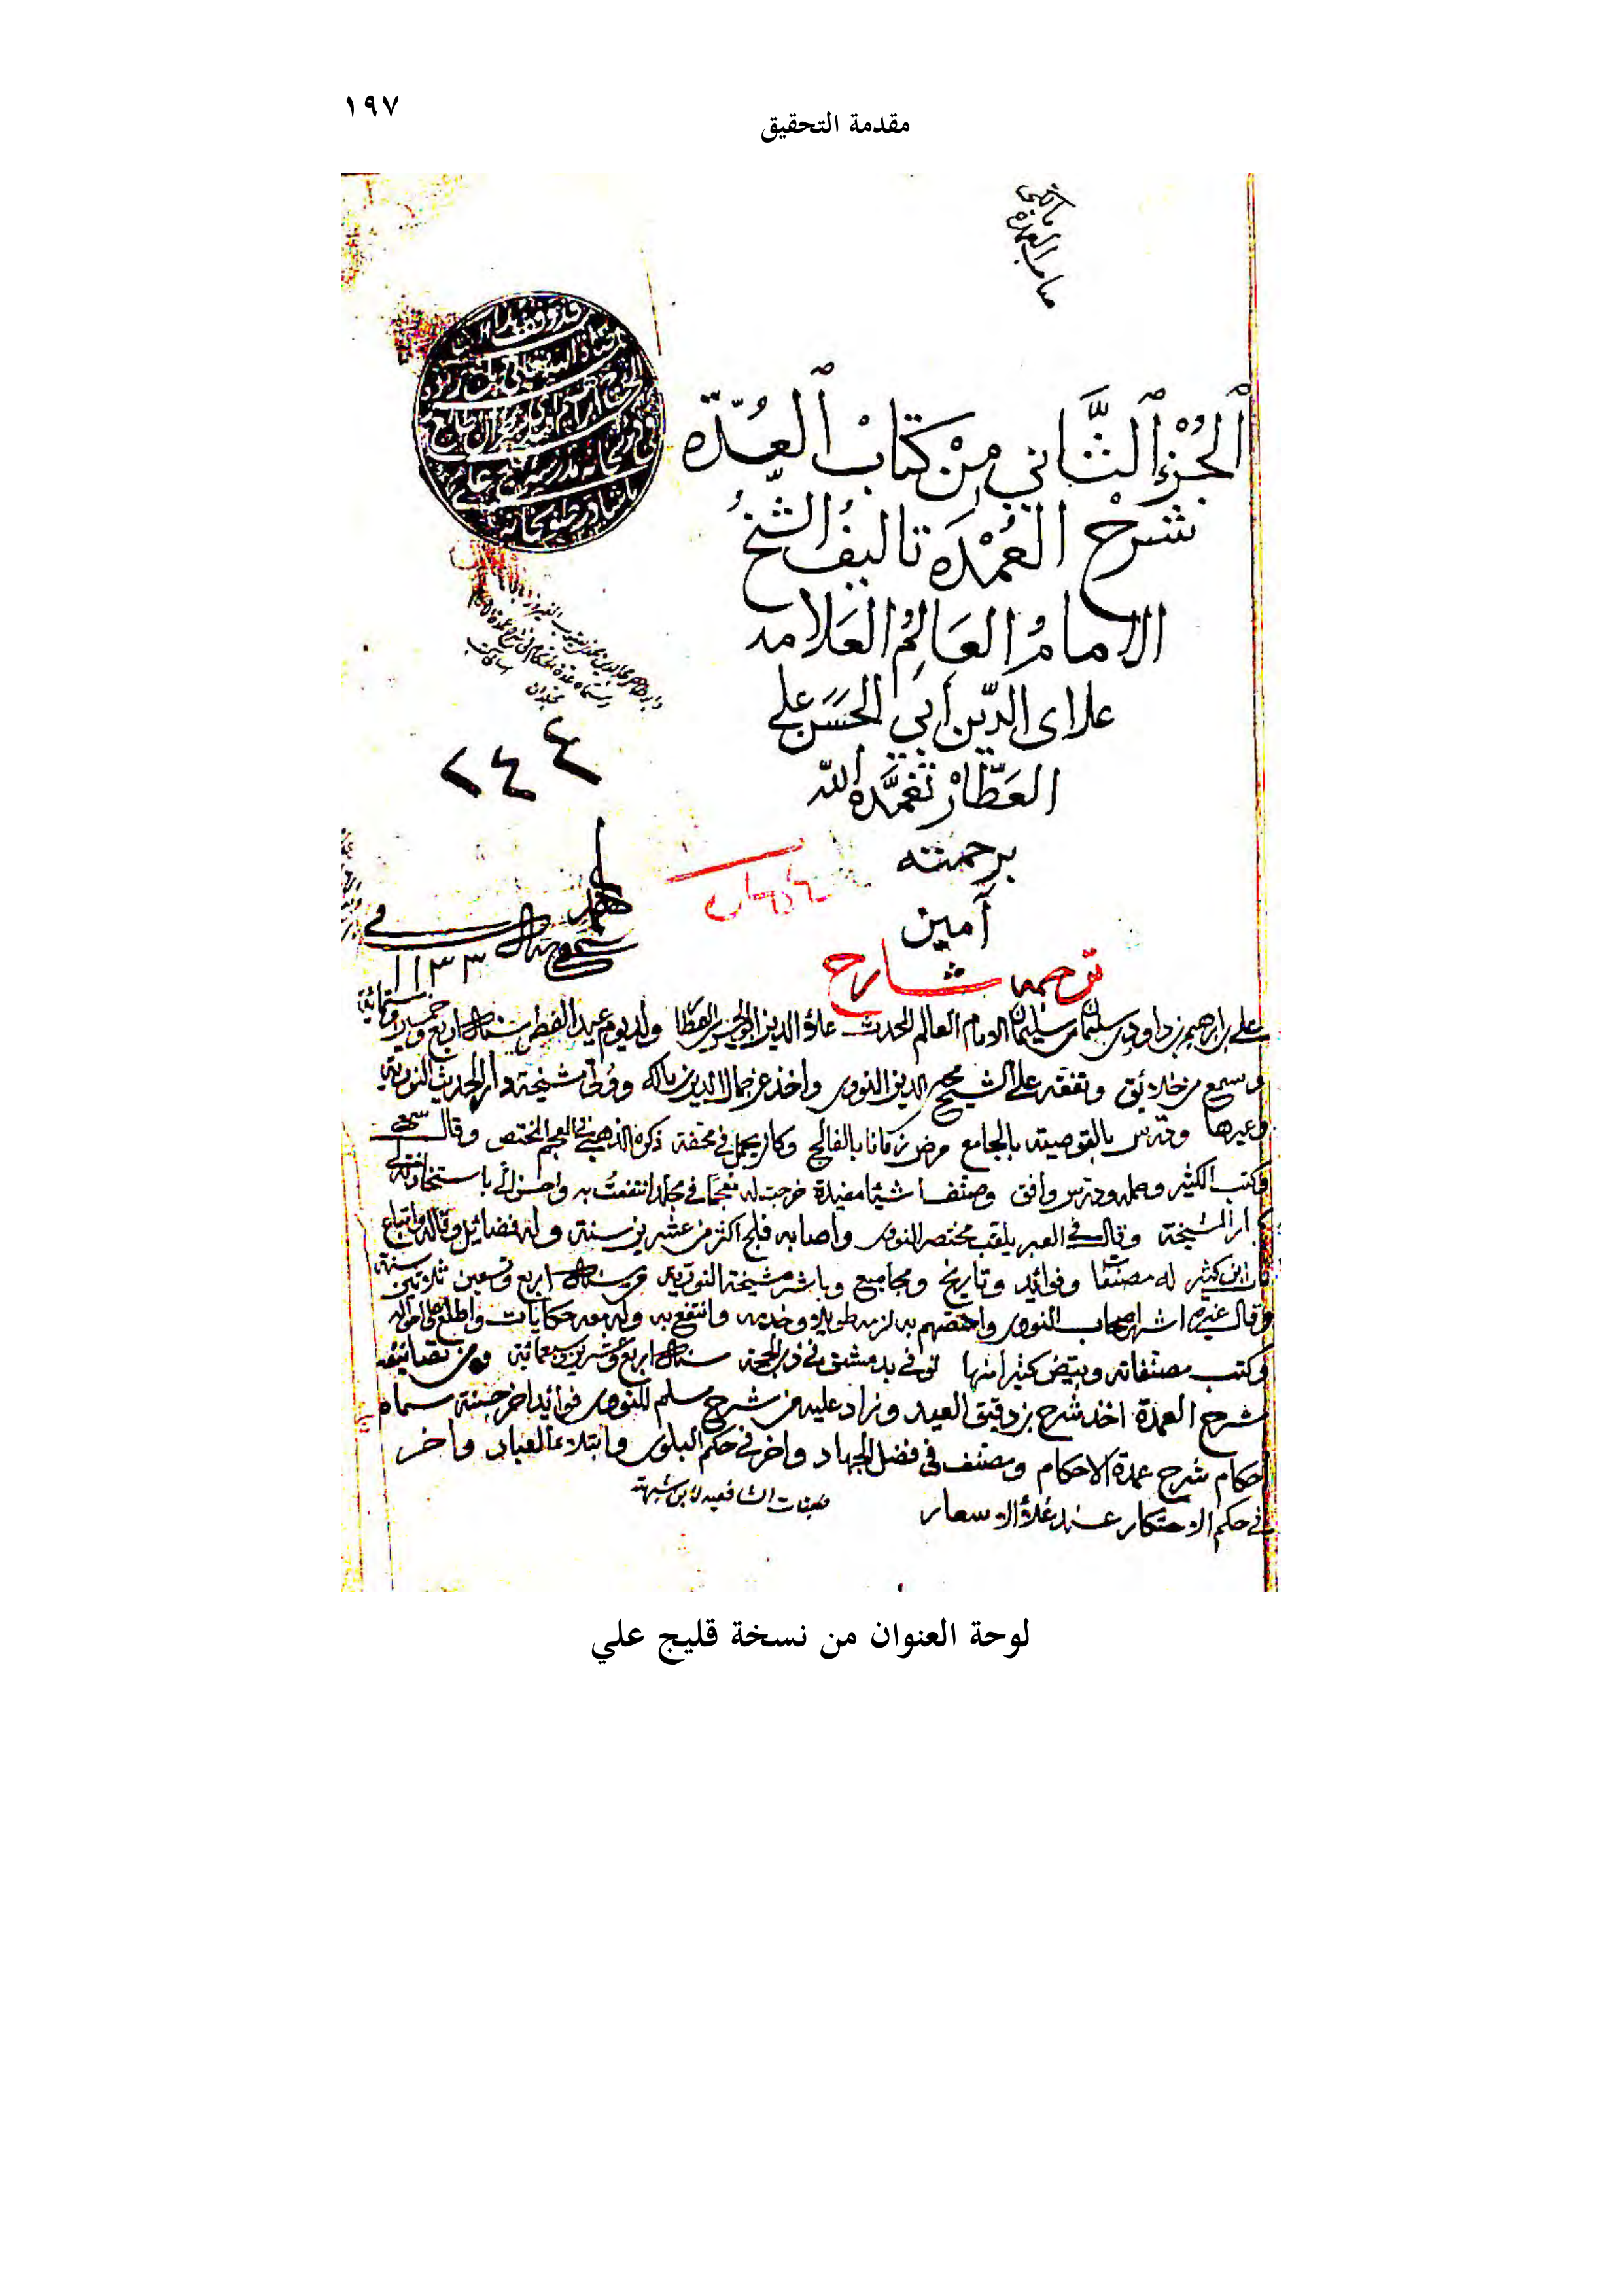 ١٩٧
مقدمة التحقيق
الجُزْءُ الثَّاني مِنْ كتَابْ العُدّه
شَرْح العُمْدَه تاليفُ الشّيخُ
الامامُ العَالِمُ العَلامه
علاى الدّين أبي الحَسَن علي
العَطّارْ تَغَمَّدَهُ الله
برحمته
آمين
٢٤٤
ترجمه شارح
في
١١٣٣
علي بن ابراهيم بن داود بن سليمان بن سليمان الامام العالم المحدث علاؤ الدين ابو الحسن العطار ولد يوم عيد الفطر سنة اربع وخمسين وستمائة
وسمع من خلائق وتفقه على الشيخ محيي الدين النووي واخذ عن جمال الدين بن مالك وولي مشيخة دار الحديث النورية
وغيرها ودرس بالقوصية بالجامع مرض زمانا بالفالج وكان يحمل في محفة ذكره الذهبي في المعجم المختص وقال سمع
وكتب الكثير وحمله ودرس وافتى وصنف اشياء مفيدة خرجت له معجما في مجلد انتفعت به واحسن الي باستجازته لي
كبار المشيخة وقال في العبر يلقب بمختصر النووي واصابه فلج اكثر من عشرين سنة وله فضائل وتاله واتباع
قال ابن كثير له مصنفات وفوائد وتاريخ ومجاميع وباشر مشيخة النورية من سنة اربع وتسعين ثلاثين سنة
وقال غيره اشهر اصحاب النووي واخصهم به لزمه طويلا وخدمه وانتفع به وله معه حكايات واطلع على احواله
وكتب مصنفاته وبيض كثيرا منها توفي بدمشق في ذي الحجة سنة اربع وعشرين وسبعمائة ومن تصانيفه
شرح العمدة اخذ شرح بن دقيق العيد وزاد عليه من شرح مسلم للنووي فوائد اخر حسنة سماه
احكام شرح عمدة الاحكام ومصنف في فضل الجهاد واخر في حكم البلوى وابتلاء العباد واخر
في حكم الاحتكار عند غلاؤ الاسعار
طبقات الشافعيه لابن شهبة
لوحة العنوان من نسخة قليج علي